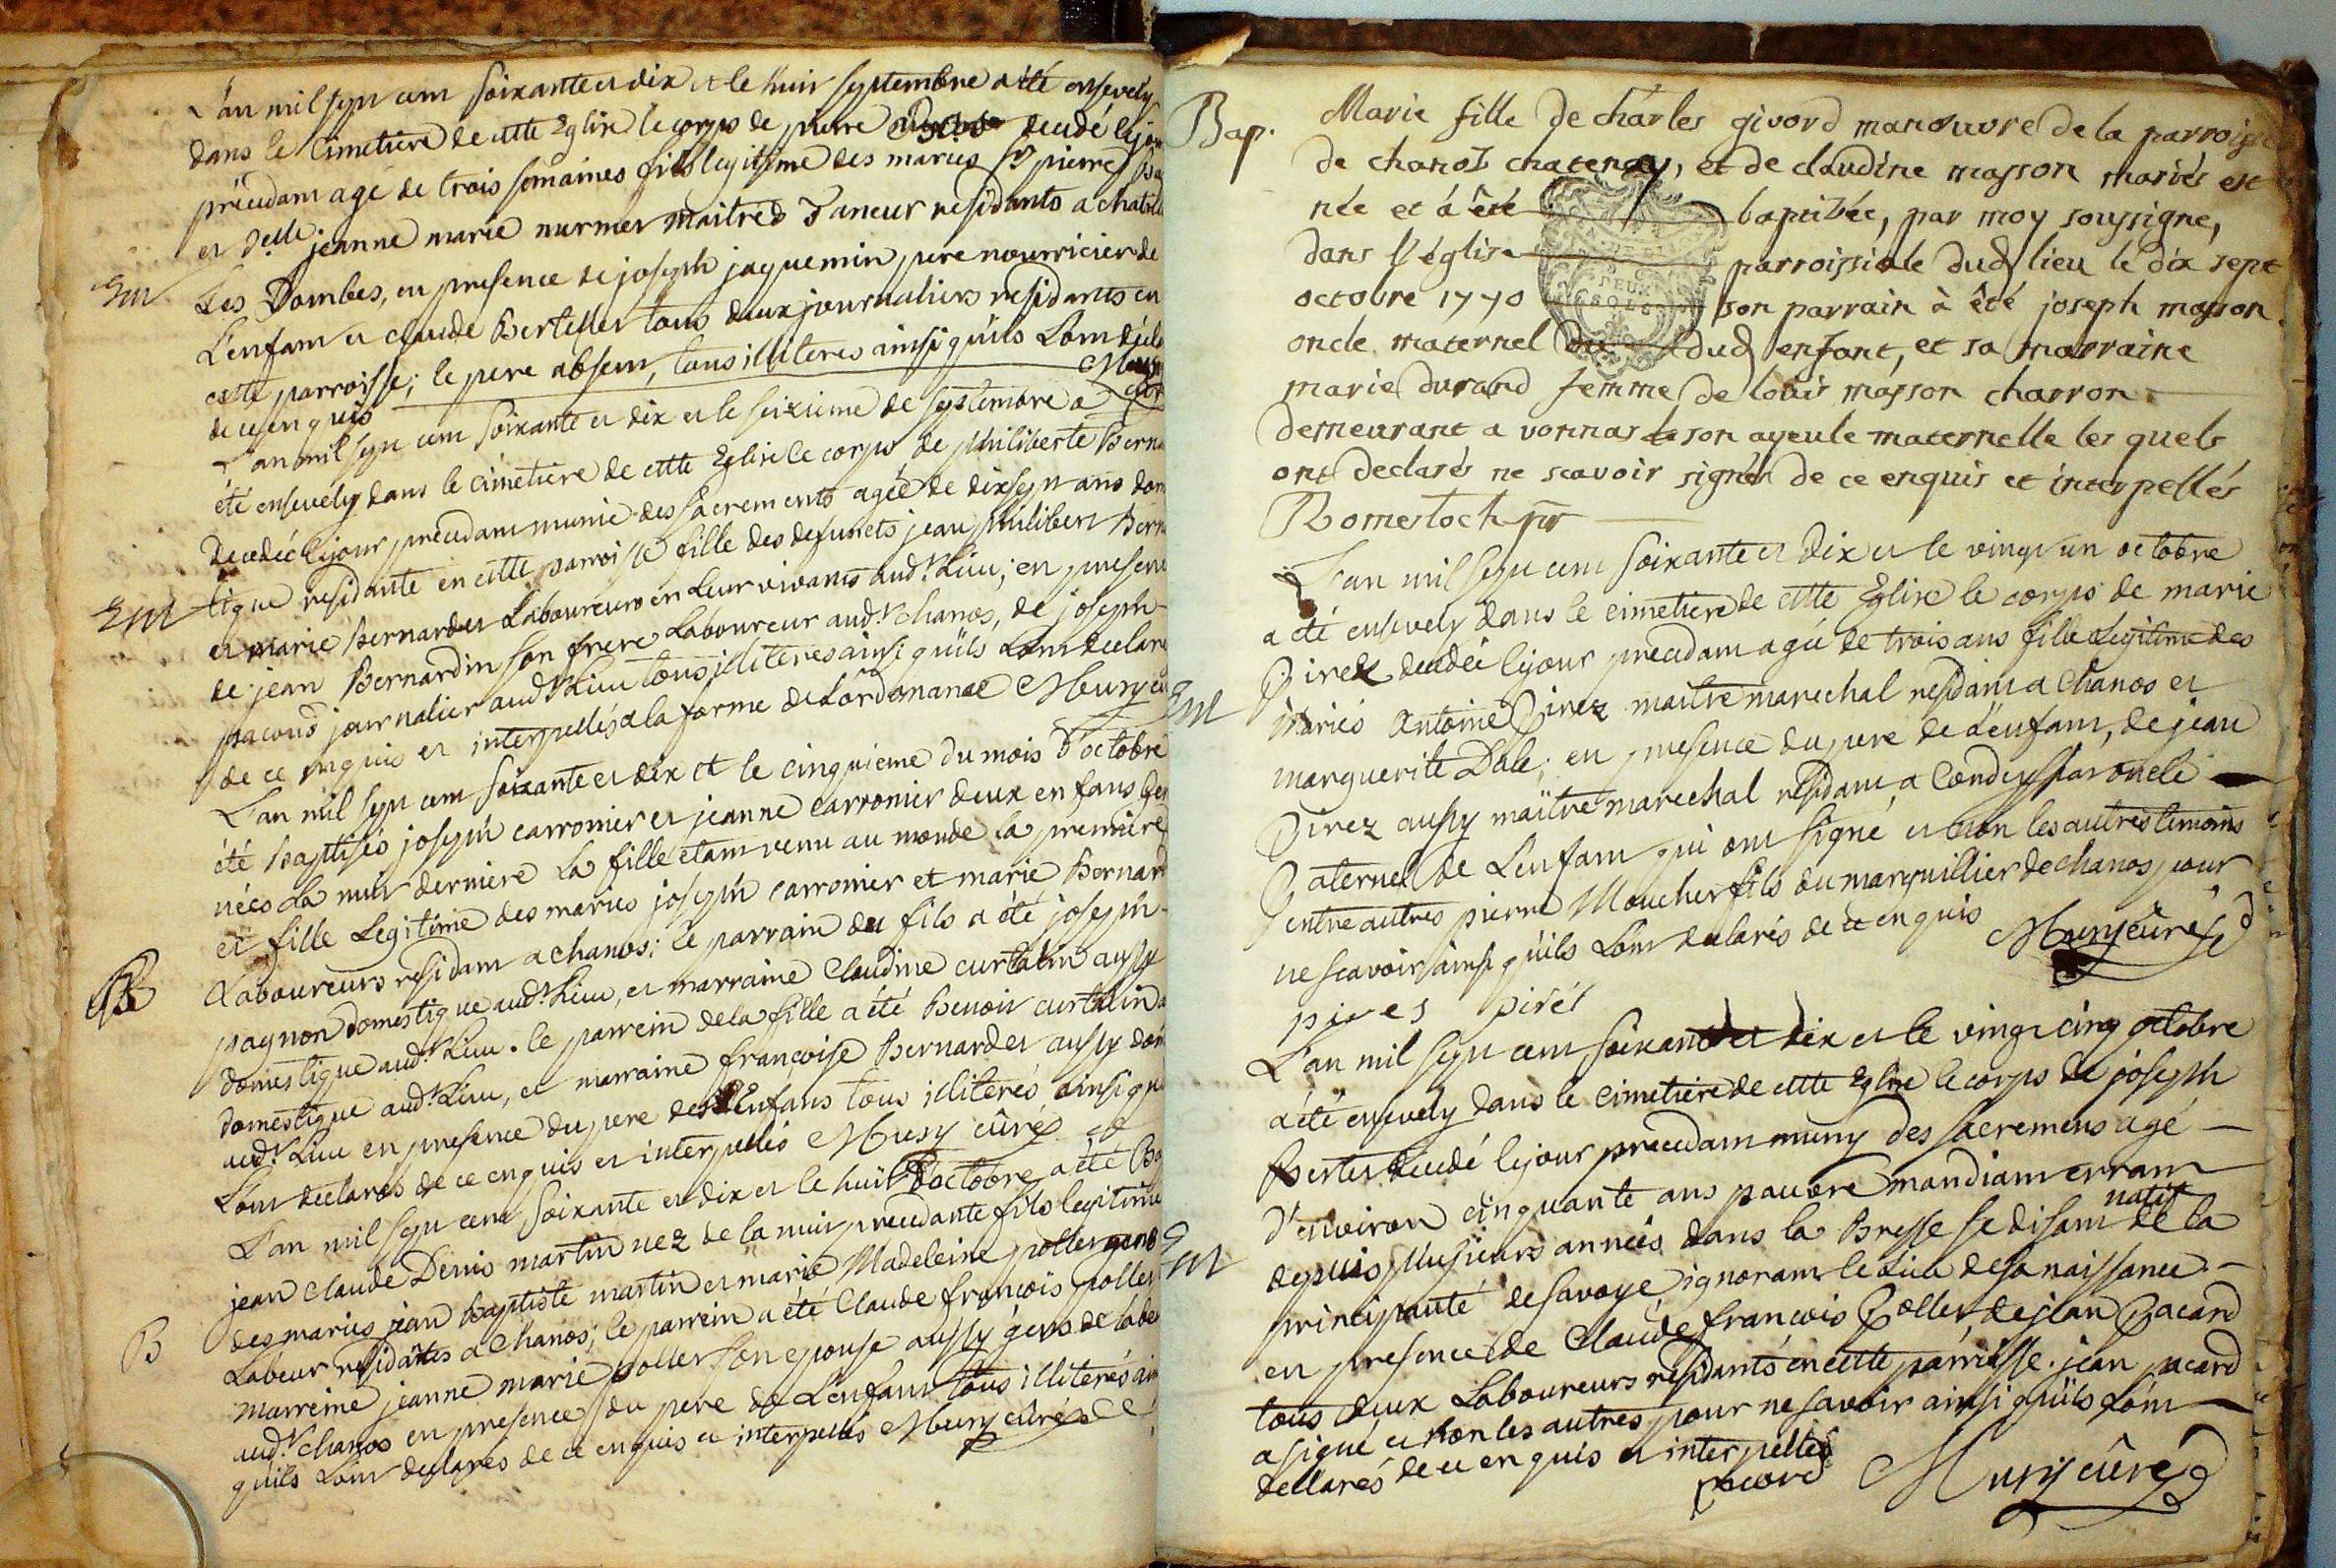 L'an mil sept cent soixante et dix et le huit septembre a été ensevely
dans le Cimetiere de cette Eglise le corps de pierre decedé le jour
précedant agé de trois semaines fils legitime des mariés Sr pierre
et Delle jeanne marie nurmet maitres Taneur residants a chatillon
Les Dombes, en presence de joseph jaquemin pere nourricier de
Em
L'enfant et claude Bertellet tous deux journaliers residants en
cette parroisse; le pere absent, tous illiteres ainsi qu'ils L'ont declaré
de ce enquis
L'an mil sept cent soixante et dix et le seizieme de septembre a
été ensevely dans le cimetiere de cette Eglise le corps de philiberte
Decedée le jour precedant munie des sacrements agée de dix sept ans
tique residante en cette parroisse fille des defuncts jean philibert
Em
et marie Bernardet Laboureurs en Leur vivants audt Lieu; en presence
de jean Bernardin son frere Laboureur audt chanos, de joseph
pacoud journalier audt Lieu tous illiteres ainsi qu'ils L'ont declaré
de ce enquis et interpellés a la forme de L'ordonnance Muny curé
L'an mil sept cent soixante et dix et le cinquieme du mois d'octobre
été baptisés joseph carronier et jeanne carronier deux enfans
nées La nuit derniere La fille etant venu au monde la premiere
et fille Legitime des mariés joseph carronier et marie Bernard
Laboureurs residant a chanos; le parrain du fils a été joseph
B
pagnon domestique audt Lieu, et marraine Claudine curtalin aussy
domestique audt Lieu. le parrein de la fille a été Benoit curtalin
domestique audt Lieu, et marraine françoise Bernardet aussy
audt Lieu en presence du pere des Enfans tous illiterés ainsi que
L'ont declarés de ce enquis et interpellés Muny curé
L'an mil sept cent soixante et dix et le huit D'octobre a été
jean claude Denis martin nez de la nuit precedante fils legitime
des mariés jean baptiste martin et marie Madeleine pollet gens
B
Labeur residants a Chanos; le parrein a été Claude françois pollet
marreine jeanne marie pollet son epouse aussy gens de labeur
audt chanos en presence du pere de L'enfant tous illiterés
quils L'ont declarés de ce enquis et interpellés Muny curé
Bap.
Marie fille de charles givord manœuvre de la parroisse
de chanoz chatenay, et de claudine masson mariés est
née et a été baptisée, par moy soussigne,
dans l'église parroissiale dud lieu le dix sept
octobre 1770 son parrain à été joseph masson
oncle maternel dud enfant, et sa marraine
marie durand femme de louis masson charron
demeurant a vonnas son ayeule maternelle les quels
ont declarés ne scavoir signer de ce enquis et interpellés
Romestoch
L'an mil sept cent soixante et dix et le vingt un octobre
a été ensevely dans le cimetiere de cette Eglise le corps de marie
Pirez decedée le jour precedant agée de trois ans fille Legitime des
Em
mariés Antoine Pirez maitre marechal residant a Chanos et
marguerite Dale; en presence du pere de L'enfant, de jean
Pirez aussy maitre marechal residant a Condeyssia oncle
Paternel de L'enfant qui ont signé et non les autres temoins
entre autres pierre Mouchet fils du marguillier de chanos pour
ne scavoir ainsi qu'ils L'ont declarés de ce enquis Muny curé
pires pirét
L'an mil sept cent soixante et dix et le vingt cinq octobre
a été ensevely dans le cimetiere de cette Eglise le corps de joseph
Bertet decedé le jour precedant muny des sacremens agé
D'environ cinquante ans pauvre mandiant errant
depuis plusieurs années dans la Bresse se disant natif de la
Em
principauté de Savoye ignorant le Lieu de sa naissance
en presence de Claude francois Pollet de jean Pacard
tous deux Laboureurs residants en cette parroisse. jean pacard
a signé et non les autres pour ne savoir ainsi qu'ils L'ont
declarés de ce enquis et interpellés
pacard Muny curé